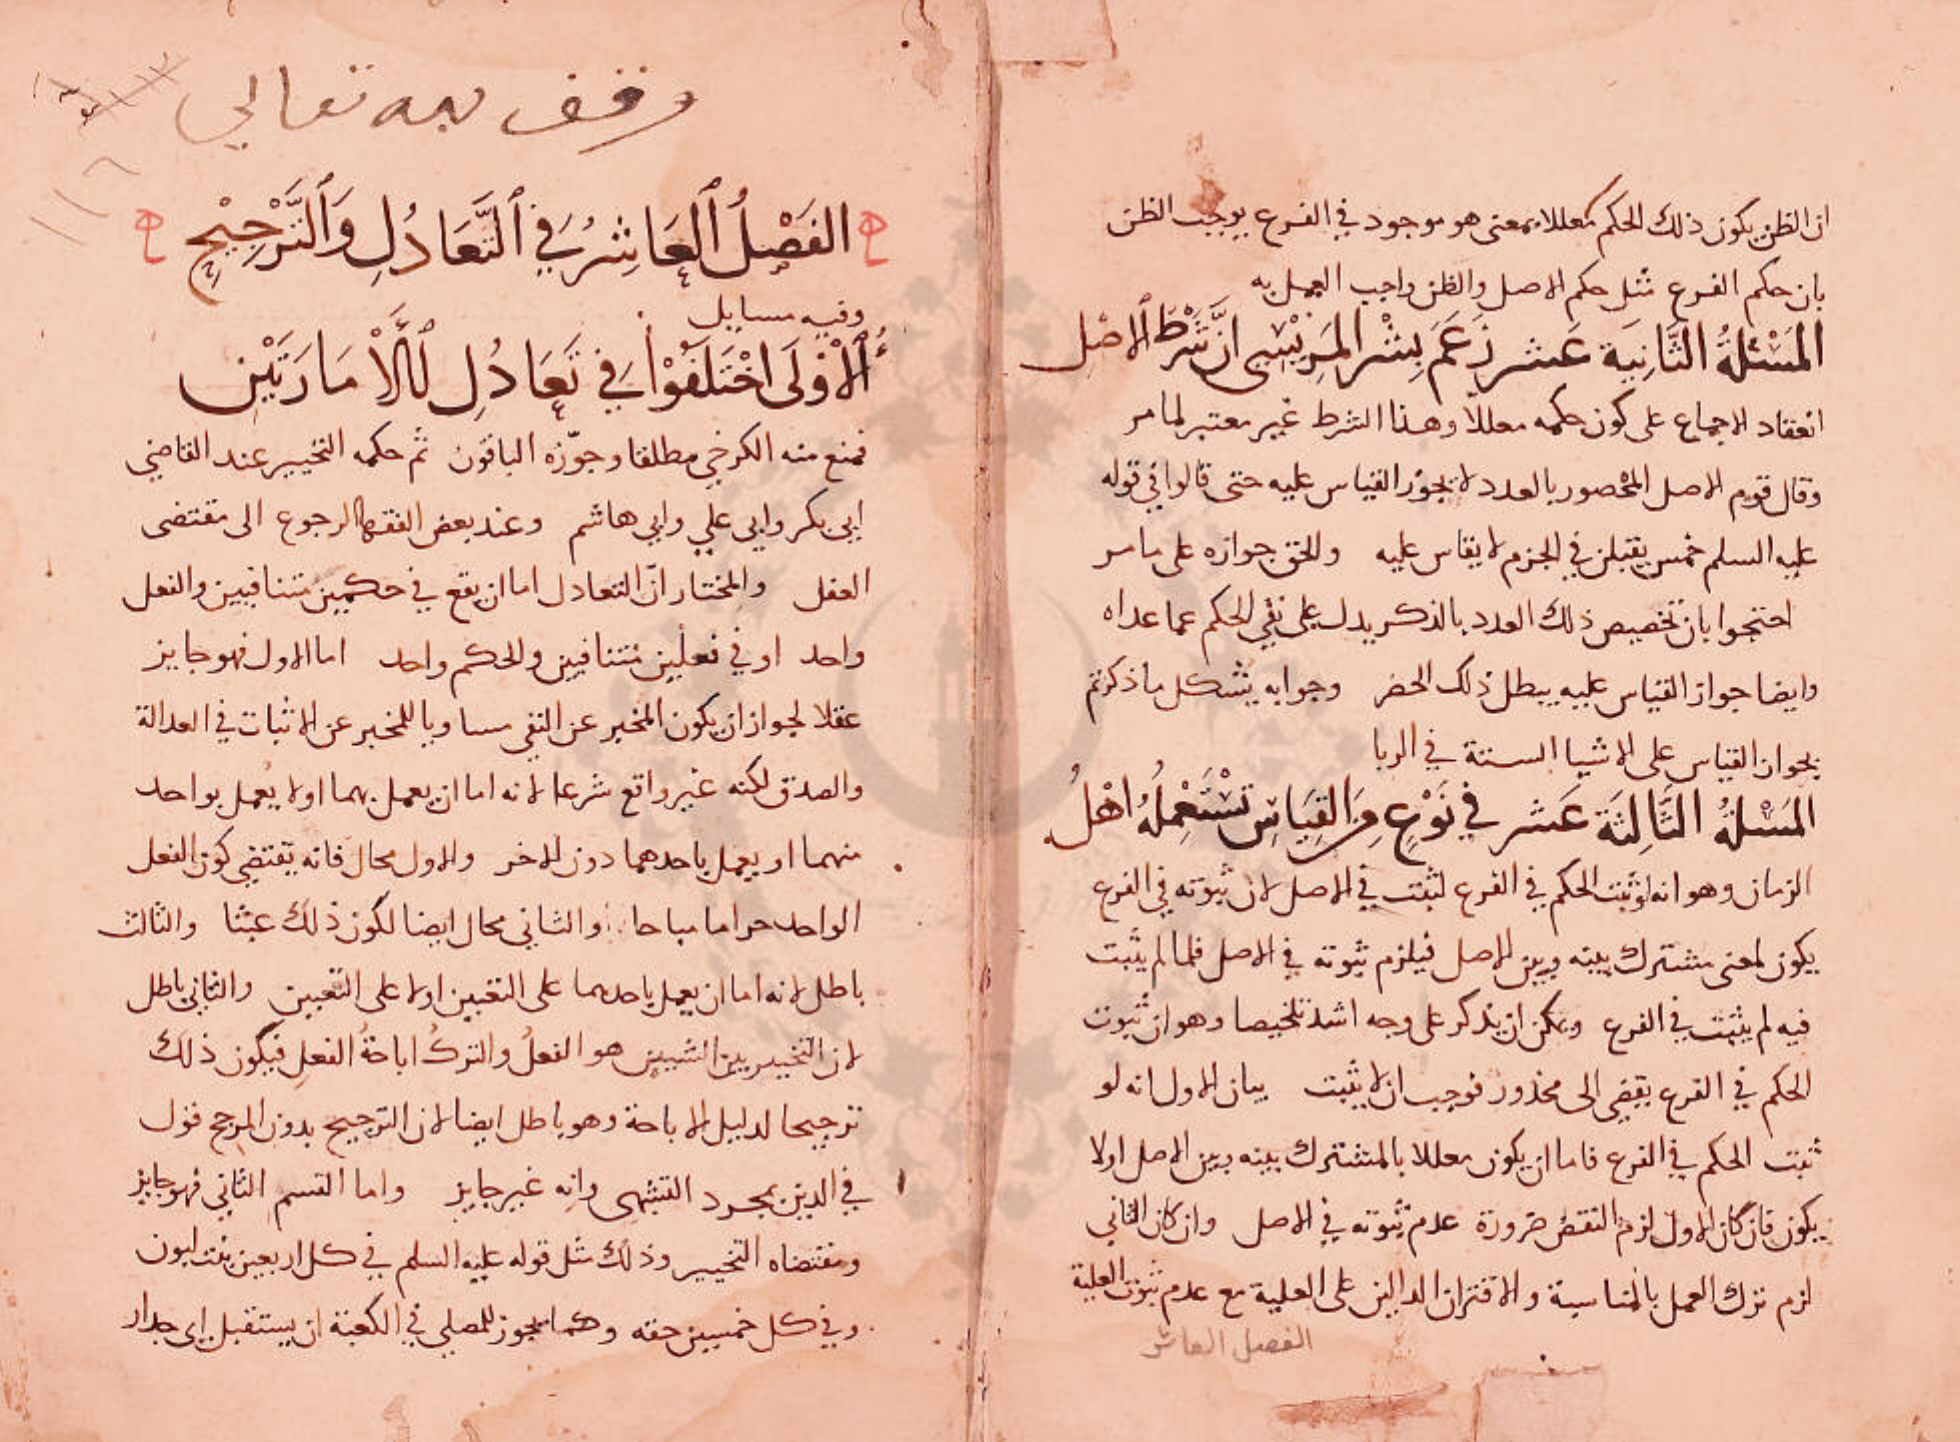 ان الظن يكون ذلك الحكم معللا بمعنى هو موجود في الفرع يوجب الظن
بان حكم الفرع مثل حكم الاصل والظن واجب العمل به
المسئلة الثانية عشر زعم بشر المريسي ان شرط الاصل
انعقاد الاجماع على كون حكمه معللا وهذا الشرط غير معتبر لما مر
وقال قوم الاصل المحصور بالعدد لا يجوز القياس عليه حتى قالوا في قوله
عليه السلم خمس يقتلن في الحرم لا يقاس عليه والحق جوازه على ما مر
احتجوا بان تخصيص ذلك العدد بالذكر يدل على نفي الحكم عما عداه
وايضا جواز القياس عليه يبطل ذلك الحصر وجوابه يشكل ما ذكرتم
بجواز القياس على الاشيا الستة في الربا
المسئلة الثالثة عشر في نوع من القياس تستعمله اهل
الزمان وهو انه لو ثبت الحكم في الفرع لثبت في الاصل لان ثبوته في الفرع
يكون لمعنى مشترك بينه وبين الاصل فيلزم ثبوته في الاصل فلما لم يثبت
فيه لم يثبت في الفرع ويمكن ان يذكر على وجه اشد تلخيصا وهو ان ثبوت
الحكم في الفرع يفضي الى محذور فوجب ان لا يثبت بيان الاول انه لو
ثبت الحكم في الفرع فاما ان يكون معللا بالمشترك بينه وبين الاصل اولا
يكون فان كان الاول لزم النقض ضرورة عدم ثبوته في الاصل وان كان الثاني
لزم ترك العمل بالمناسبة والاقتران الدالين على العلية مع عدم ثبوت العلية
الفصل العاشر
وقف لله تعالى
الفصل العاشر في التعادل والترجيح
وفيه مسايل
الاولى اختلفوا في تعادل الامارتين
فمنع منه الكرخي مطلقا وجوّزه الباقون ثم حكمه التخيير عند القاضي
ابي بكر وابي علي وابي هاشم وعند بعض الفقها الرجوع الى مقتضى
العقل والمختار انّ التعادل اما ان يقع في حكمين متنافيين والفعل
واحد او في فعلين متنافيين والحكم واحد اما الاول فهو جايز
عقلا لجواز ان يكون المخبر عن النفي مساويا للمخبر عن الاثبات في العدالة
والصدق لكنه غير واقع شرعا لانه اما ان يعمل بهما او لا يعمل بواحد
منهما او يعمل باحدهما دون الاخر والاول محال فانه يقتضي كون الفعل
الواحد حراما مباحا والثاني محال ايضا لكون ذلك عبثا والثالث
باطل لانه اما ان يعمل باحدهما على التعيين اولا على التعيين والثاني باطل
لان التخيير بين الشيين هو الفعل والترك اباحة الفعل فيكون ذلك
ترجيحا لدليل الاباحة وهو باطل ايضا لان الترجيح بدون المرجح قول
في الدين بمجرد التشهى وانه غير جايز واما القسم الثاني فهو جايز
ومقتضاه التخيير وذلك مثل قوله عليه السلم في كل اربعين بنت لبون
وفي كل خمسين حقه وكما يجوز للمصلي في الكعبة ان يستقبل اي جدار